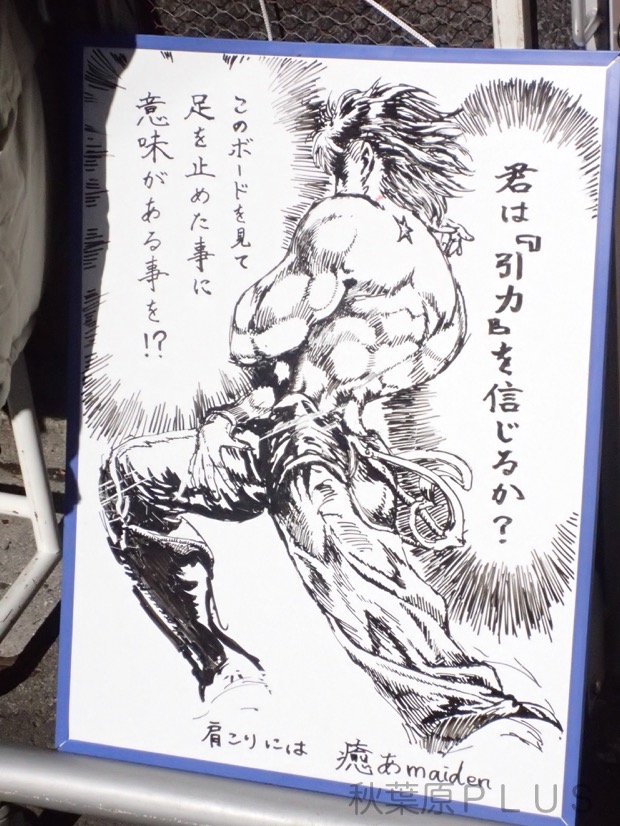 君は『引力』を信じるか?
このボードを見て
足を止めた事に
意味がある事を!?
肩こりには 癒あmaiden
秋葉原PLUS